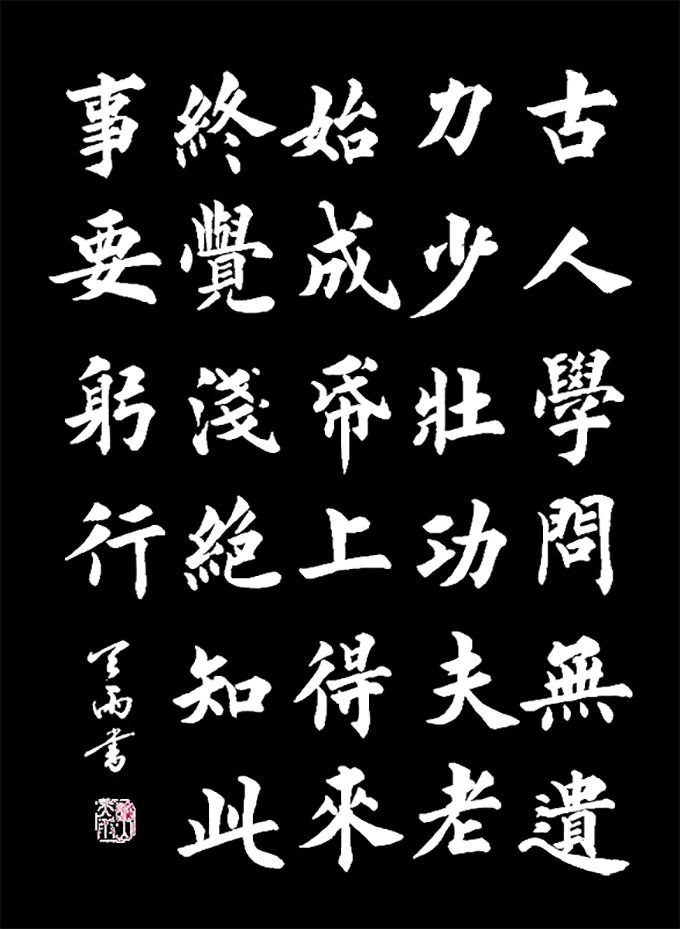 古人學問無遺
力少壯功夫老
始成帋上得來
終覺淺絶知此
事要躬行
天雨書